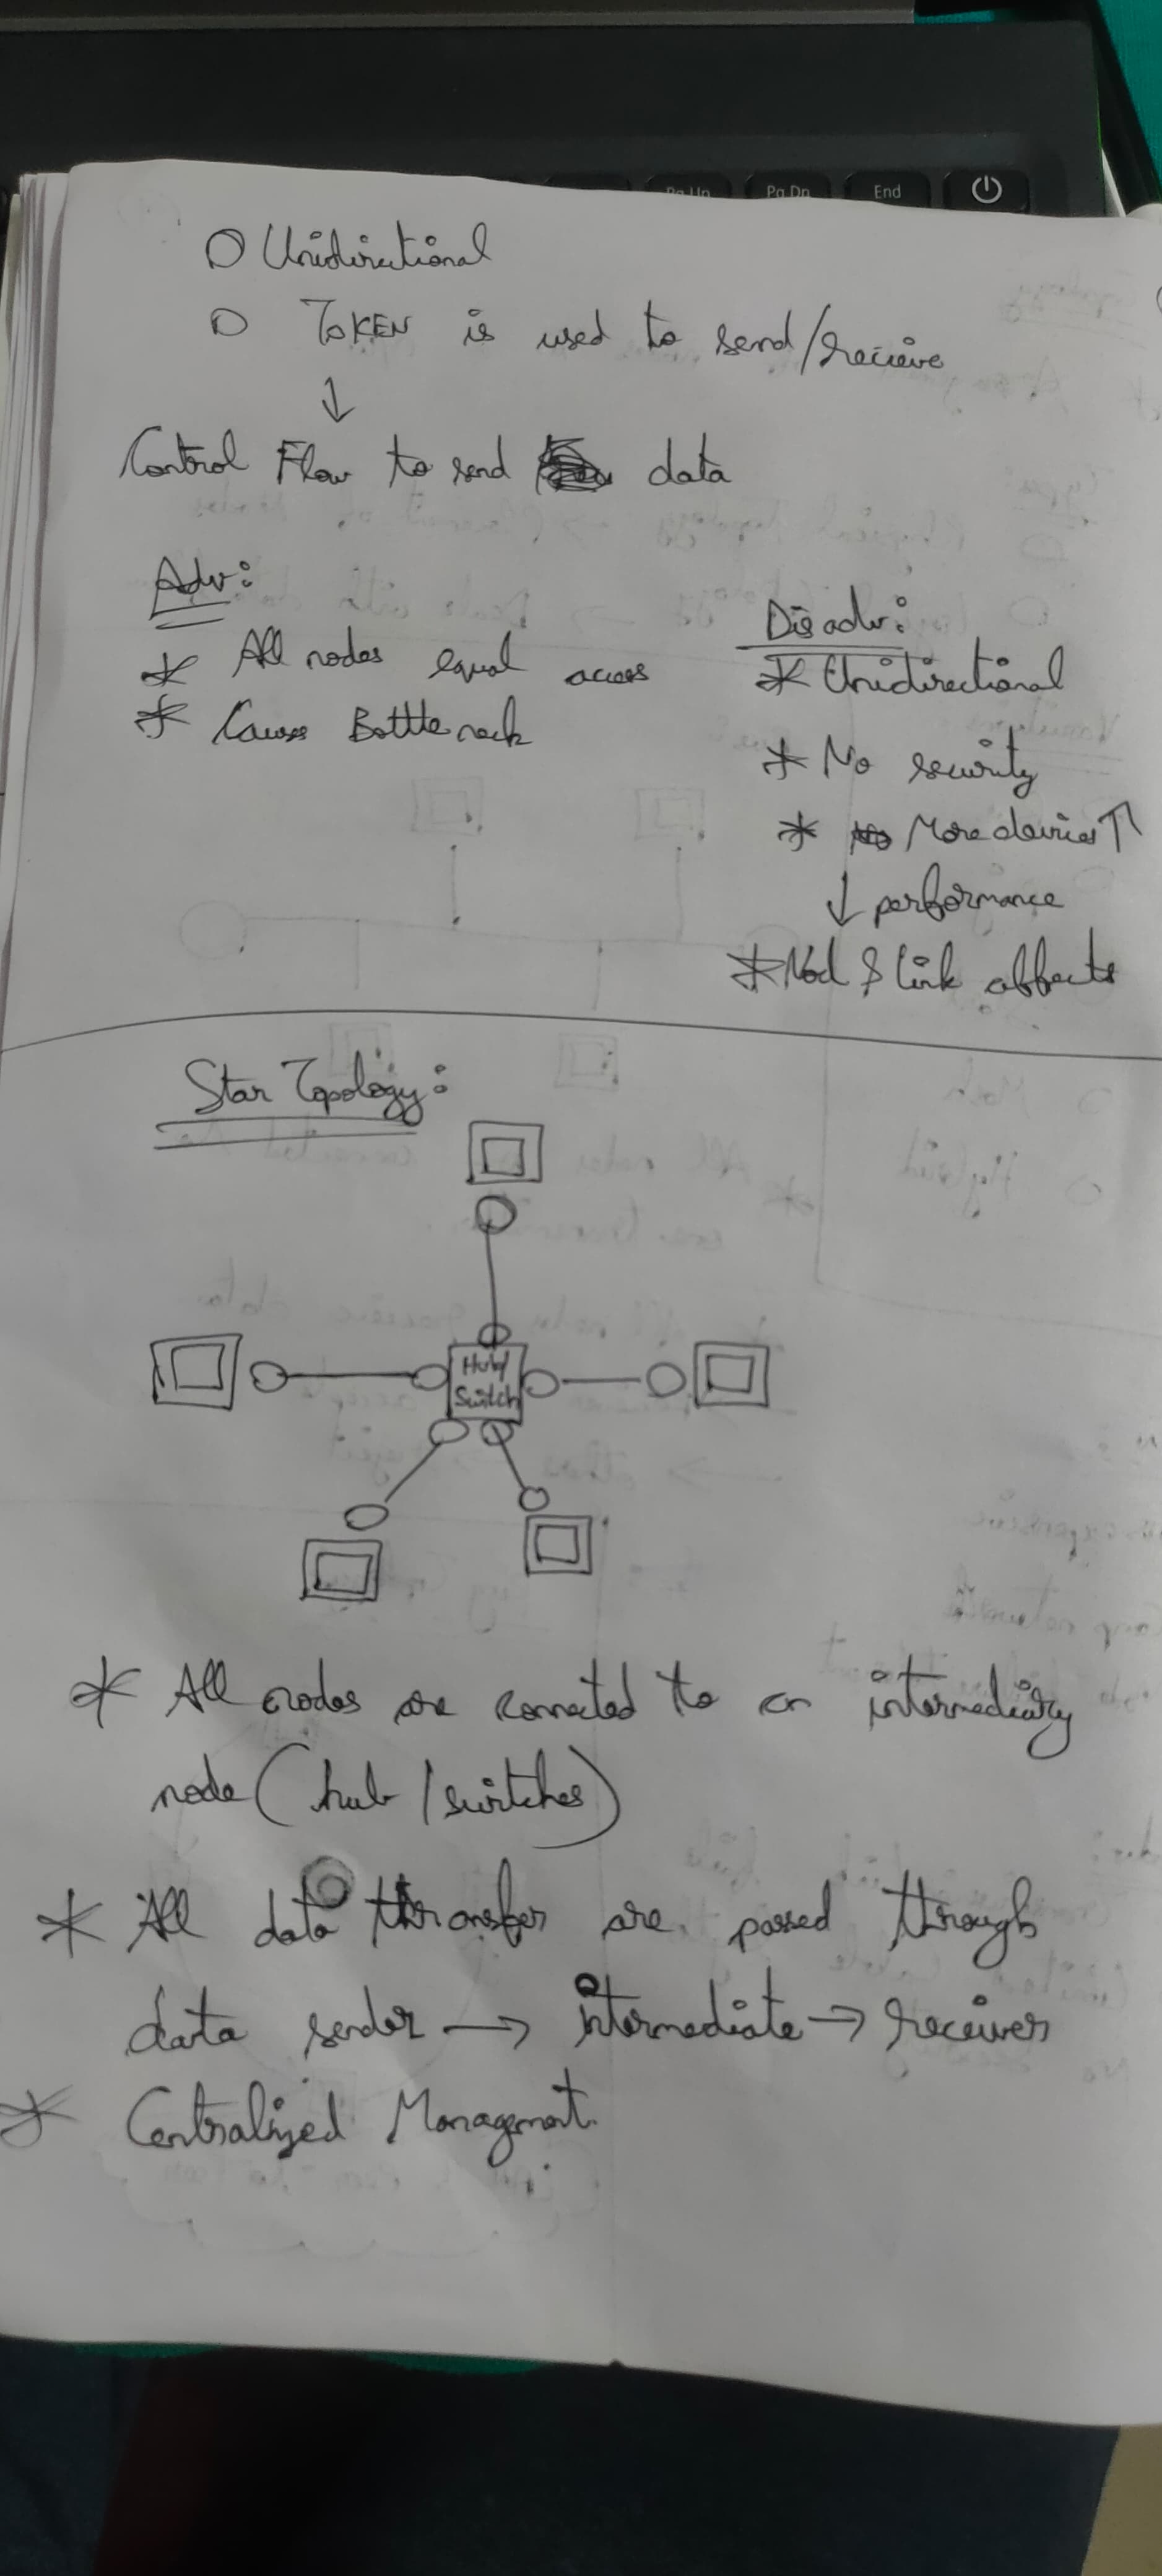 Pg Up
Pg Dn
End
O Unidirectional
O TOKEN is used to send/recieve
↓
Control Flow to send data
Adv:
* All nodes equal access
* Cause Bottle neck
Disadv:
* Unidirectional
* No security
* More devices ↑
↓ performance
* Nod & link affects
Star Topology:
Hub/
Switch
* All nodes are connected to an intermediary
node (hub / switches)
* All data thransfer are passed through
data sender → intermediate → receiver
* Centralized Managment